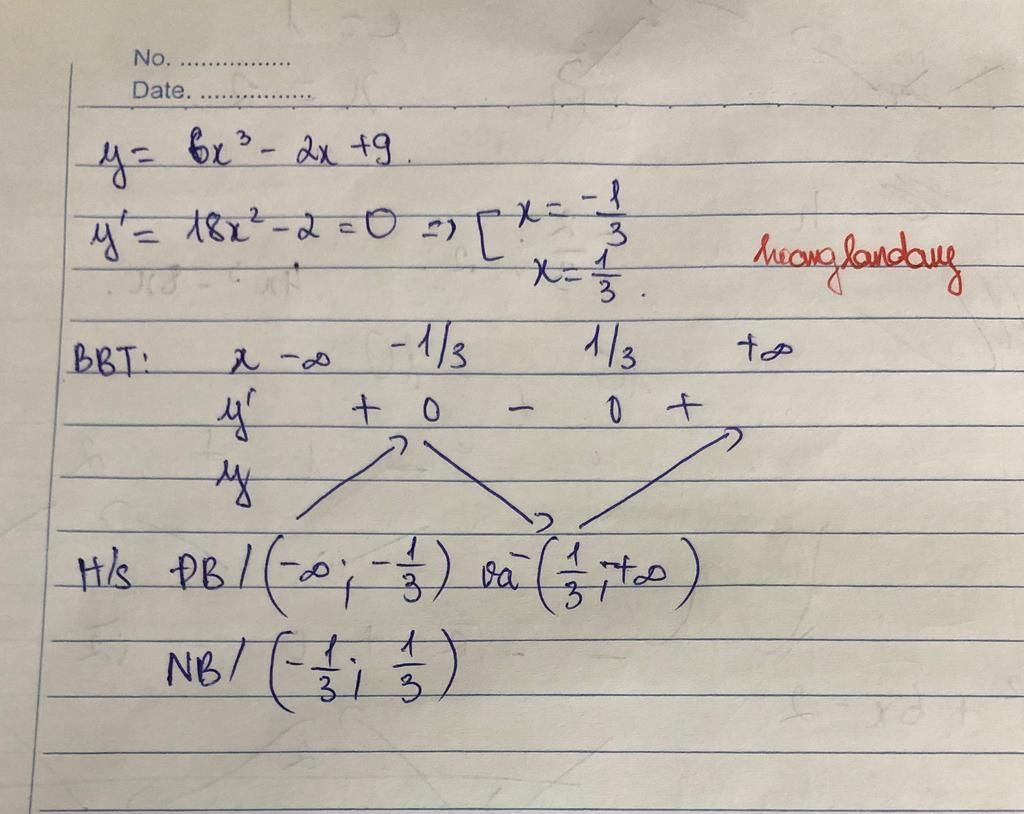 No. ................
Date. ................
y = 6x³ - 2x + 9.
y' = 18x² - 2 = 0 => [ x = -1/3
x = 1/3.
hoanglandang
BBT: x -∞ -1/3 1/3 +∞
y' + 0 - 0 +
y
H/s ĐB / (-∞; -1/3) và (1/3; +∞)
NB / (-1/3; 1/3)